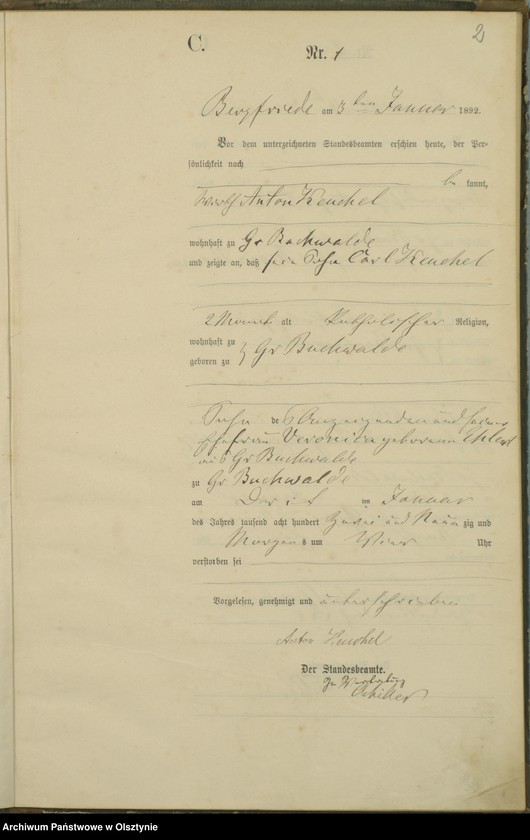 2
C.
Nr. 1
Bergfriede am 3ten Januar 1892.
Vor dem unterzeichneten Standesbeamten erschien heute, der Per-
sönlichkeit nach
be kannt,
Wirth Anton Keuchel
wohnhaft zu Gr Buchwalde
und zeigte an, daß sein Sohn Carl Keuchel
2 Monat alt Katholischer Religion,
wohnhaft zu
geboren zu } Gr Buchwalde
Sohn des Anzeigenden und seiner
Ehefrau Veronica geborenen Ehlert
aus Gr Buchwalde
zu Gr Buchwalde
am Drit im Januar
des Jahres tausend acht hundert zwei und Neun zig und
Morgens um Vier Uhr
verstorben sei
Vorgelesen, genehmigt und unterschrieben
Anton Keuchel
Der Standesbeamte.
In Vertretung
Archiwum Państwowe w Olsztynie